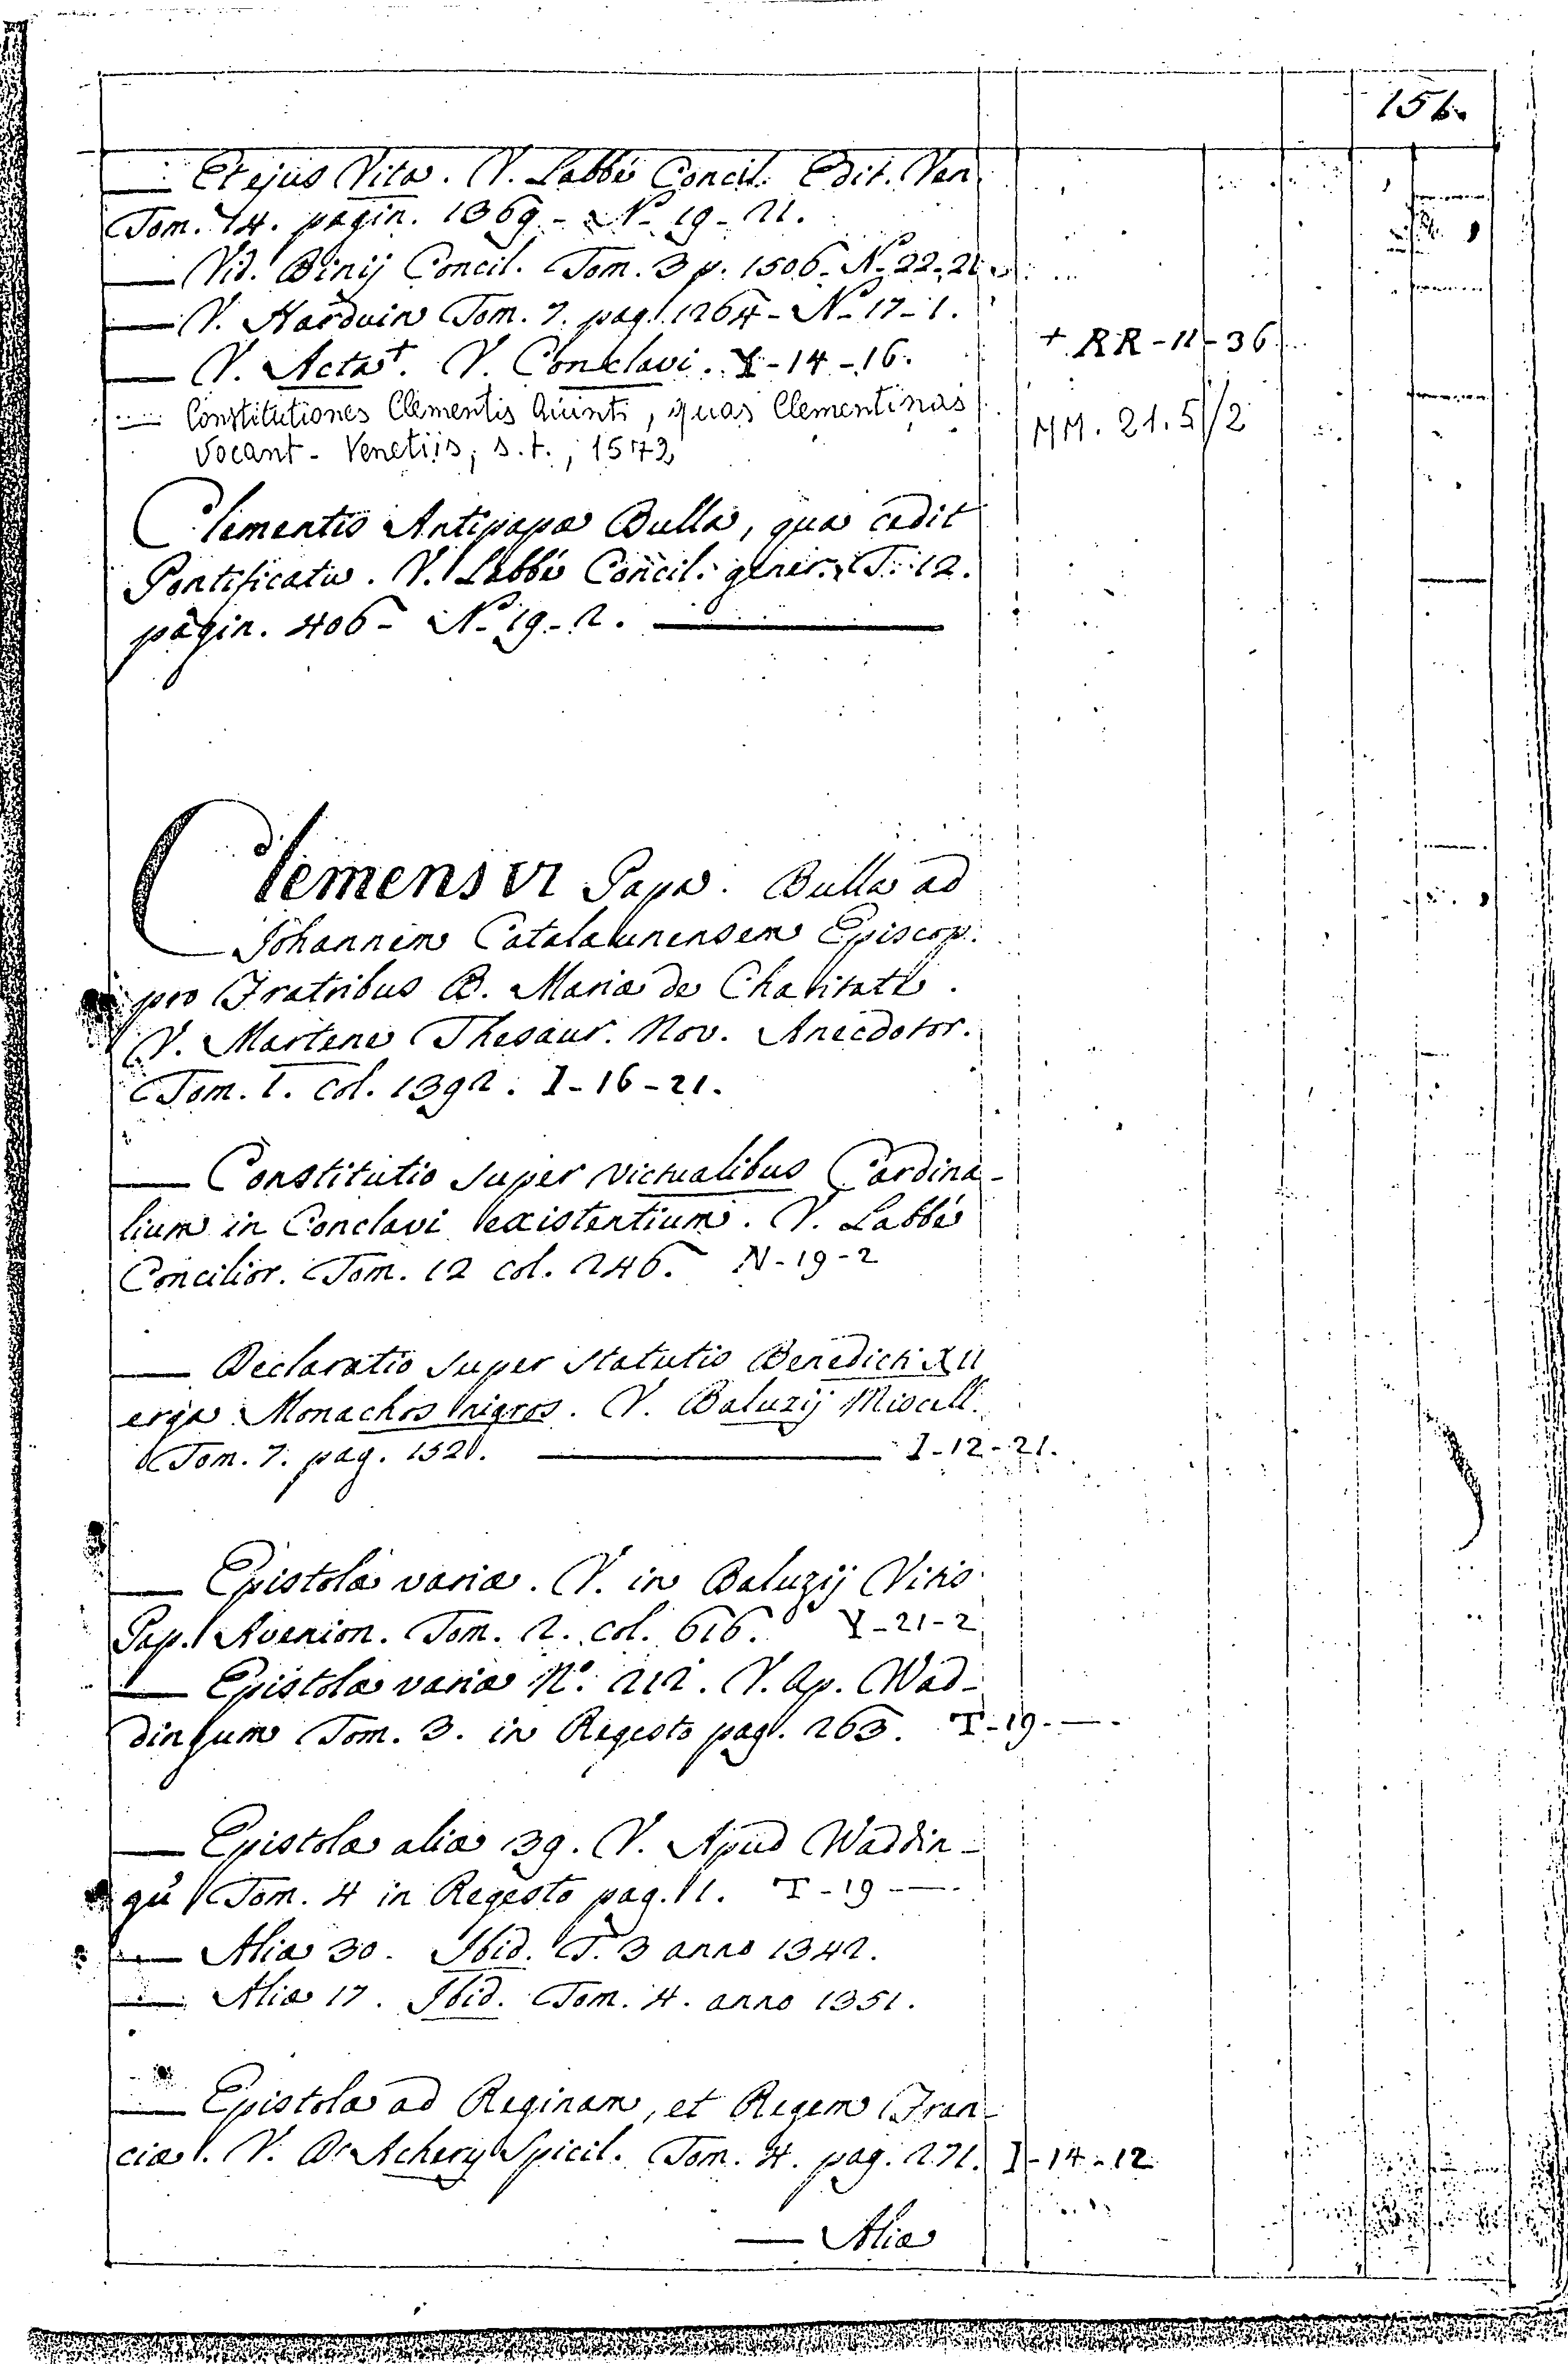 156.
— Et ejus Vita. V. Labbé Concil. Edit. Ven.
Tom. 14. pagin. 1369 - N - 19 - 21.
— Vid. Binij Concil. Tom. 3 p. 1506 - N - 22 - 21
— V. Harduin Tom. 7. pag. 1264 - N - 17 - 1.
— V. Acta +. V. Conclavi. Y - 14 - 16. + RR - 11 - 36
— Constitutiones Clementis Quinti, quas Clementinas MM. 21. 5/2
vocant - Venetiis, s.t., 1572
Clementis Antipapæ Bulla, qua cedit
Pontificatu. V. Labbé Concil. gener. T. 12.
pagin. 406 - N - 19 - 2. —
Clemens VI Papa. Bulla ad
Johannem Catalaunensem Episcop.
pro Fratribus B. Mariæ de Charitate.
V. Martene Thesaur. Nov. Anecdotor.
Tom. 1. col. 1392. I - 16 - 21.
— Constitutio super victualibus Cardina-
lium in Conclavi existentium. V. Labbé
Concilior. Tom. 12 col. 246. N - 19 - 2
— Declaratio super statutis Benedicti XII
erga Monachos nigros. V. Baluzij Miscell.
Tom. 7. pag. 152. — I - 12 - 21.
— Epistolæ variæ. V. in Baluzij Vitis
Pap. Avenion. Tom. 2. col. 616. Y - 21 - 2
— Epistolæ variæ N.º 212. V. Ap. Wad-
dingum Tom. 3. in Regesto pag. 263. T - 19 - — -
— Epistolæ aliæ 39. V. Apud Waddin-
gũ Tom. 4 in Regesto pag. 1. T - 19 - —
— Aliæ 30. Ibid. T. 3 anno 1342.
— Aliæ 17. Ibid. Tom. 4. anno 1351.
— Epistolæ ad Reginam, et Regem Fran-
ciæ. V. D'Achery Spicil. Tom. 4. pag. 271. I - 14 - 12
— Aliæ